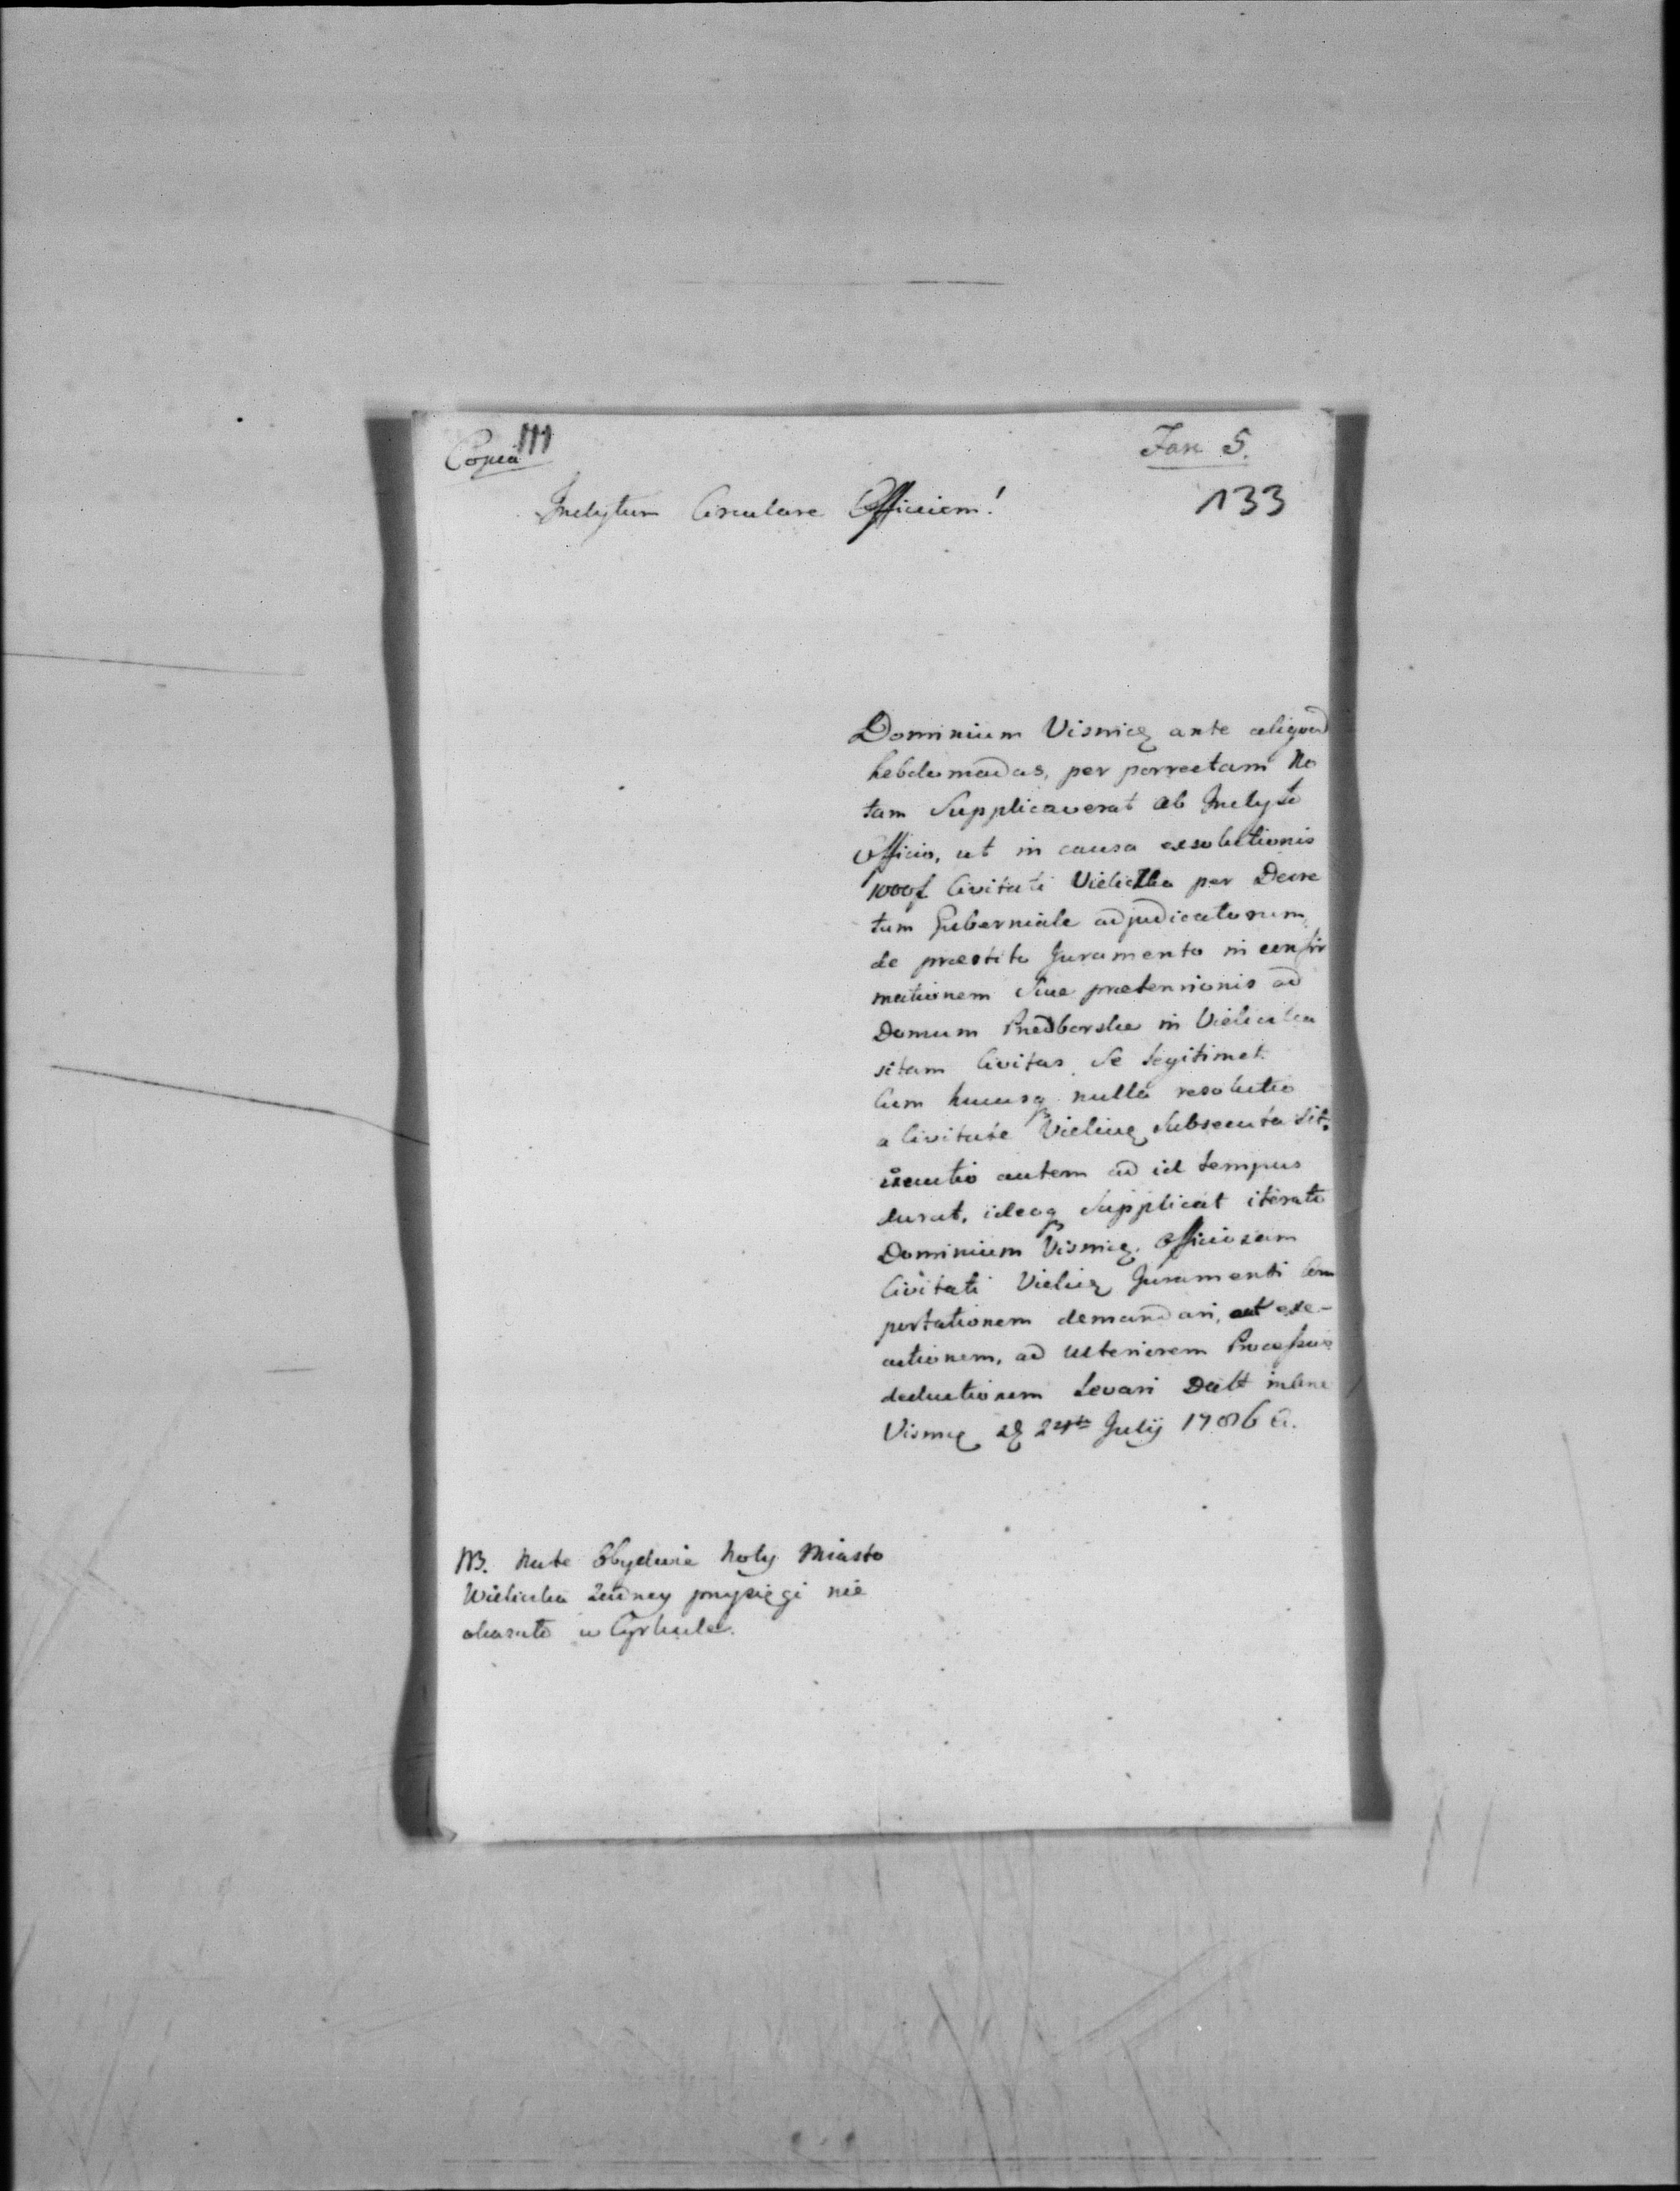 Copia 111
Fan 5.
133
Inclytum Circulare Officium!
Dominium Visnicz ante aliquod
hebdomadas, per porrectam No
tam Supplicaverat ab Inclyto
Officio, ut in causa exsolutionis
1000f Civitati Vieliczka per Decre
tum Guberniale adjudicatorum,
de præstito Juramento in confir
mationem Suae prætensionis ad
Domum Przedborska in Vieliczka
sitam Civitas Se legitimet.
Cum hucusq nulla resolutio
a Civitate Vielicz subsecuta sit,
executio autem ad id tempus
durat, ideoq Supplicat iterato
Dominium Visnicz. Officiosam
Civitati Vielicz Juramenti Com
portationem demandari, aut exe-
cutionem, ad ulteriorem Processus
deductionem levari Datt
Visnicz 24ta Julij 1786 a.
NB. Na te Obydwie Noty Miasto
Wieliczka żadney przysięgi nie
okazało w Cyrkule.